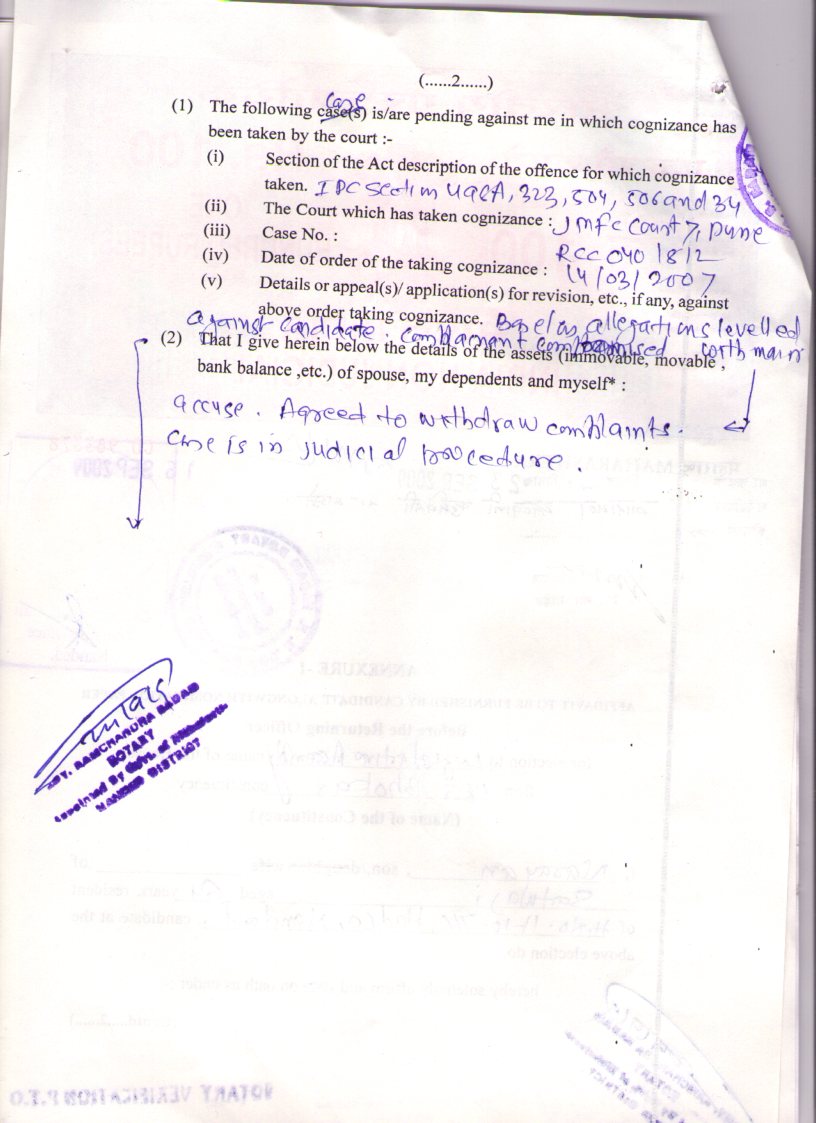 (......2......)
case
(1) The following case(s) is/are pending against me in which cognizance has
been taken by the court :-
(i) Section of the Act description of the offence for which cognizance
taken. IPC Section 498A, 323, 504, 506 and 34
(ii) The Court which has taken cognizance : JMFC Court 7, Pune
(iii) Case No. : RCC 040 1812
(iv) Date of order of the taking cognizance : 14/03/2007
(v) Details or appeal(s)/ application(s) for revision, etc., if any, against
above order taking cognizance. allegations levelled
against candidate. Complainant compromised with main
(2) That I give herein below the details of the assets (immovable, movable ,
bank balance ,etc.) of spouse, my dependents and myself* :
accuse. Agreed to withdraw complaints.
Case is in judicial procedure.
ADV. RAMCHANDRA
NOTARY
Appointed By Govt. of
NANDED DISTRICT